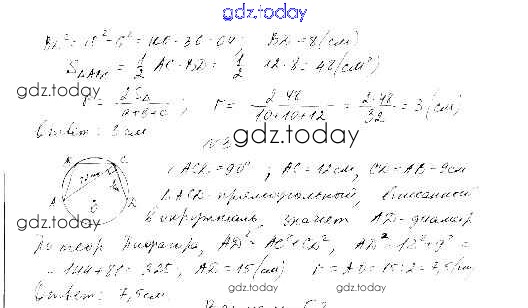 gdz.today
BD² = 10² - 6² = 100 - 36 = 64; BD = 8 (см)
S ABC = 1/2 AC · BD = 1/2 12 · 8 = 48 (см²)
gdz.today
r = 2S / a+b+c; r = 2·48 / 10+10+12 = 2·48 / 32 = 3 (см)
Ответ: 3 см
gdz.today
N 3
B C
12 см
∠ACD = 90°; AC = 12 см, CD = AB = 9 см
A D
ACD - прямоугольный, вписанный
gdz.today
в окружность, значит AD - диаметр
gdz.today
По теор Пифагора, AD² = AC² + CD², AD² = 12² + 9² =
= 144 + 81 = 225, AD = 15 (см) r = AD = 15:2 = 7,5 (см)
Ответ: 7,5 см
gdz.today
gdz.today